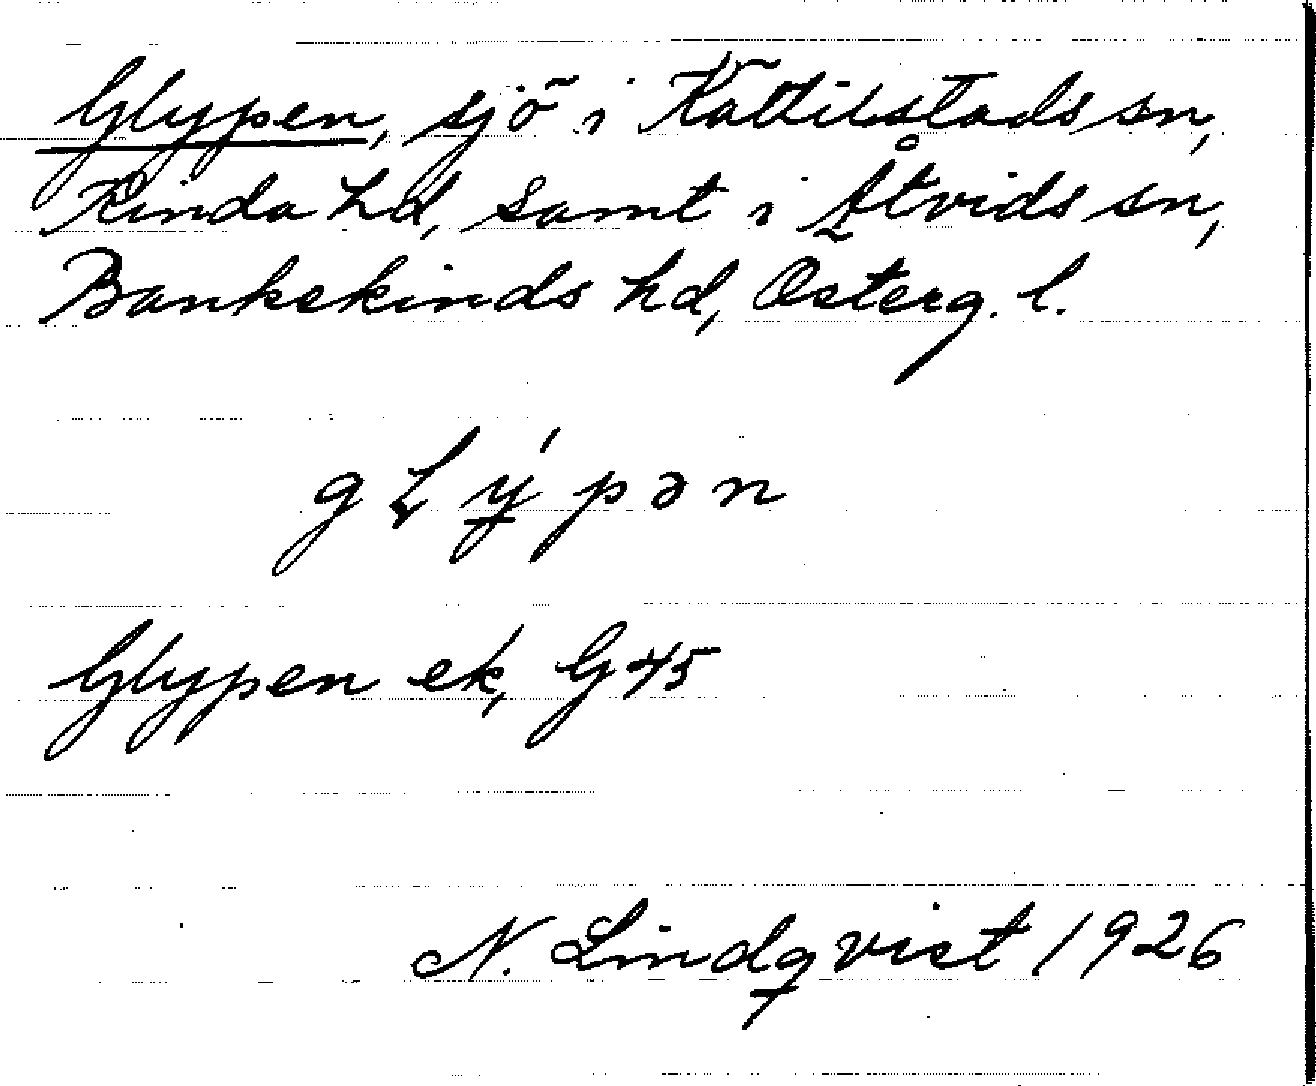 Glypen, sjö i Kättilstads sn,
Kinda hd, samt i Åtvids sn,
Bankekinds hd, Österg. l.
gLý̠pən
Glypen ek, G45
N. Lindqvist 1926